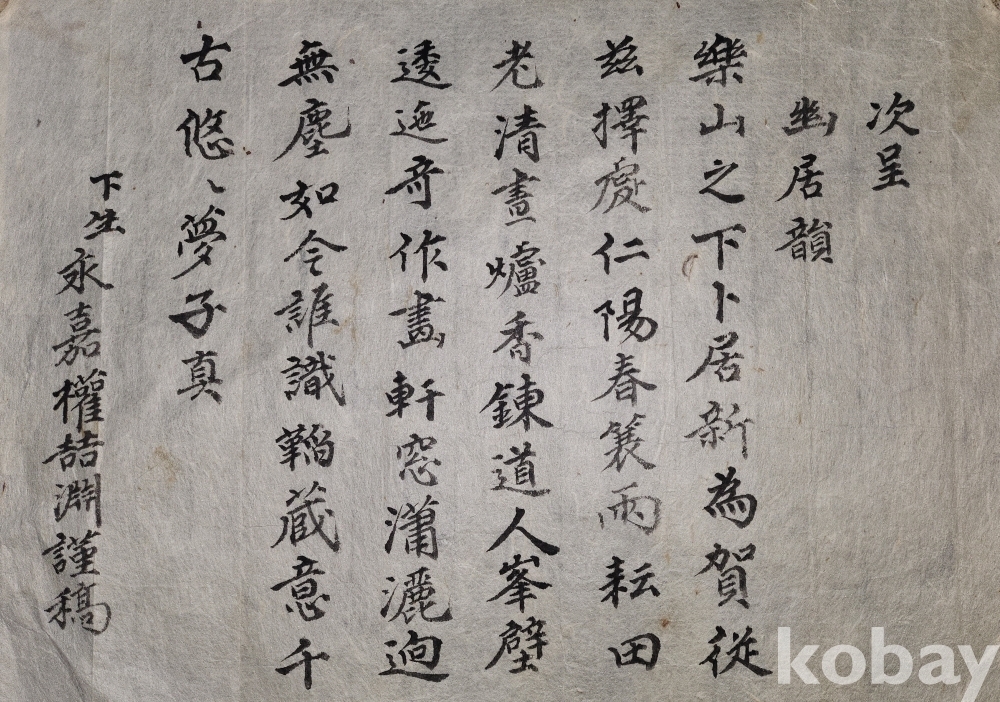 次呈
幽居韻
樂山之下卜居新為賀從
玆擇處仁陽春簑雨耘田
老清晝爐香鍊道人峯壁
逶迤奇作畫軒窓瀟灑逈
無塵如今誰識韜藏意千
古悠〻夢子真
下生 永嘉權喆淵謹稿
kobay